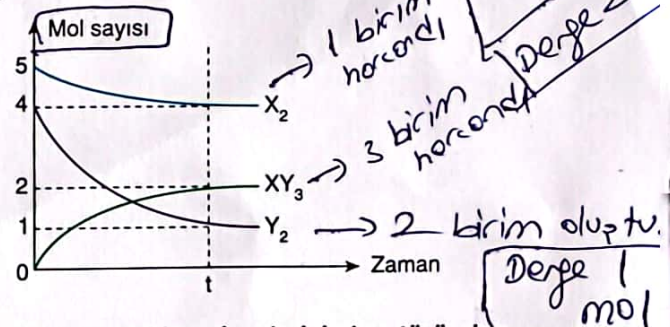 Mol sayısı
5
4
2
1
0
t
Zaman
X₂
XY₃
Y₂
1 birim
harcandı
Derge
3 birim
harcandı
2 birim oluştu.
Derge 1
mol